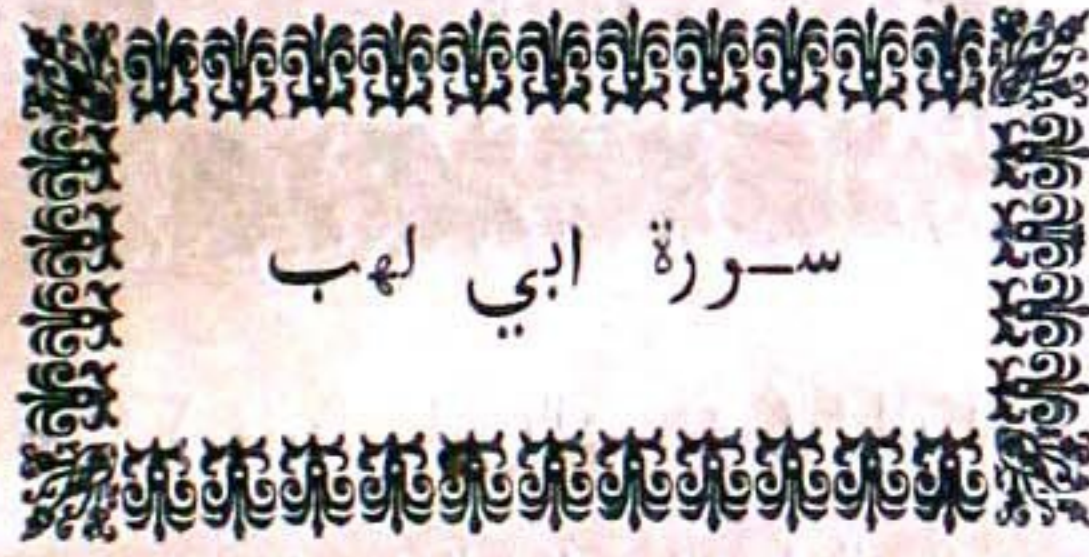 سورة ابي لهب